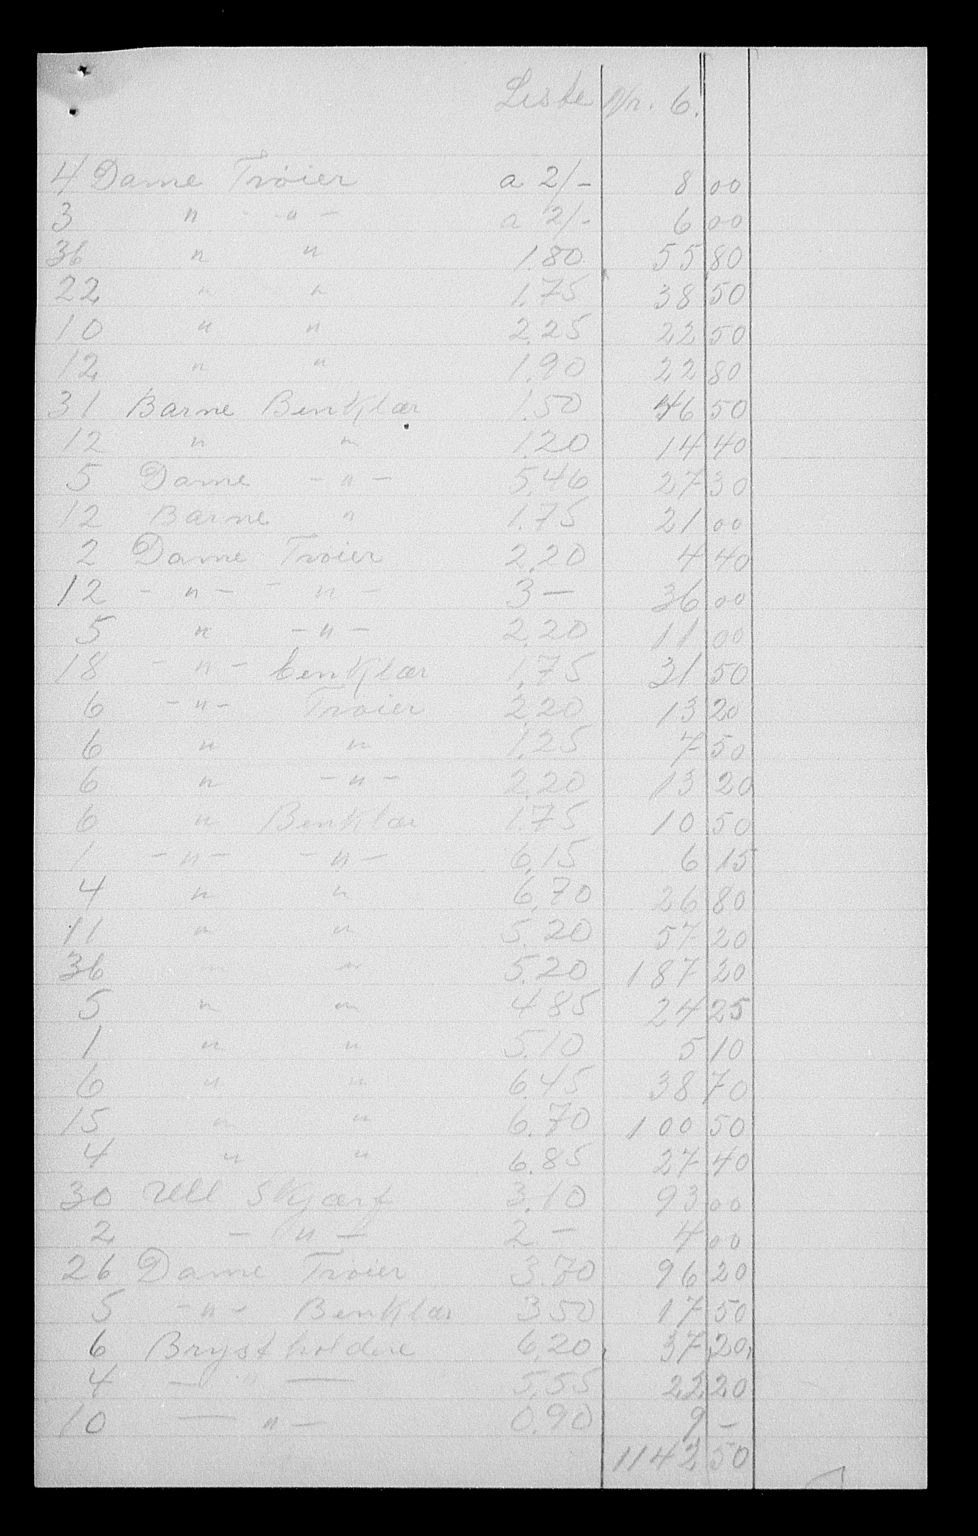 Liste Nr. 6.
4 Dame Trøier a 2/- 8 00
3 " - " - a 2/- 6 00
36 " " 1.80 55 80
22 " " 1.75 38 50
10 " " 2.25 22 50
12 " " 1.90 22 80
31 Barne Benklær 1.50 46 50
12 " " 1.20 14 40
5 Dame - " - 5.46 27 30
12 Barne " 1.75 21 00
2 Dame Trøier 2.20 4 40
12 - " - " - 3 - 36 00
5 " - " - 2.20 11 00
18 - " - benklær 1.75 31 50
6 - " - Trøier 2.20 13 20
6 " " 1.25 7 50
6 " - " - 2.20 13 20
6 " Benklær 1.75 10 50
1 - " - - " - 6.15 6 15
4 " " 6.70 26 80
11 " " 5.20 57 20
36 " " 5.20 187 20
5 " " 4.85 24 25
1 " " 5.10 5 10
6 " " 6.45 38 70
15 " " 6.70 100 50
4 " " 6.85 27 40
30 Ull Skjærf 3.10 93 00
2 - " - 2 - 4 00
26 Dame Trøier 3.70 96 20
5 - " - Benklær 3.50 17 50
6 Brystholdere 6.20 37 20
4 - " - 5.55 22 20
10 - " - 0.90 9 -
1142 50